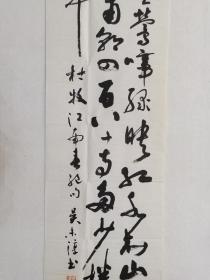 鶯啼绿映红水村山
南朝四百八十寺多少楼
中 杜牧江南春绝句 吴未淳书